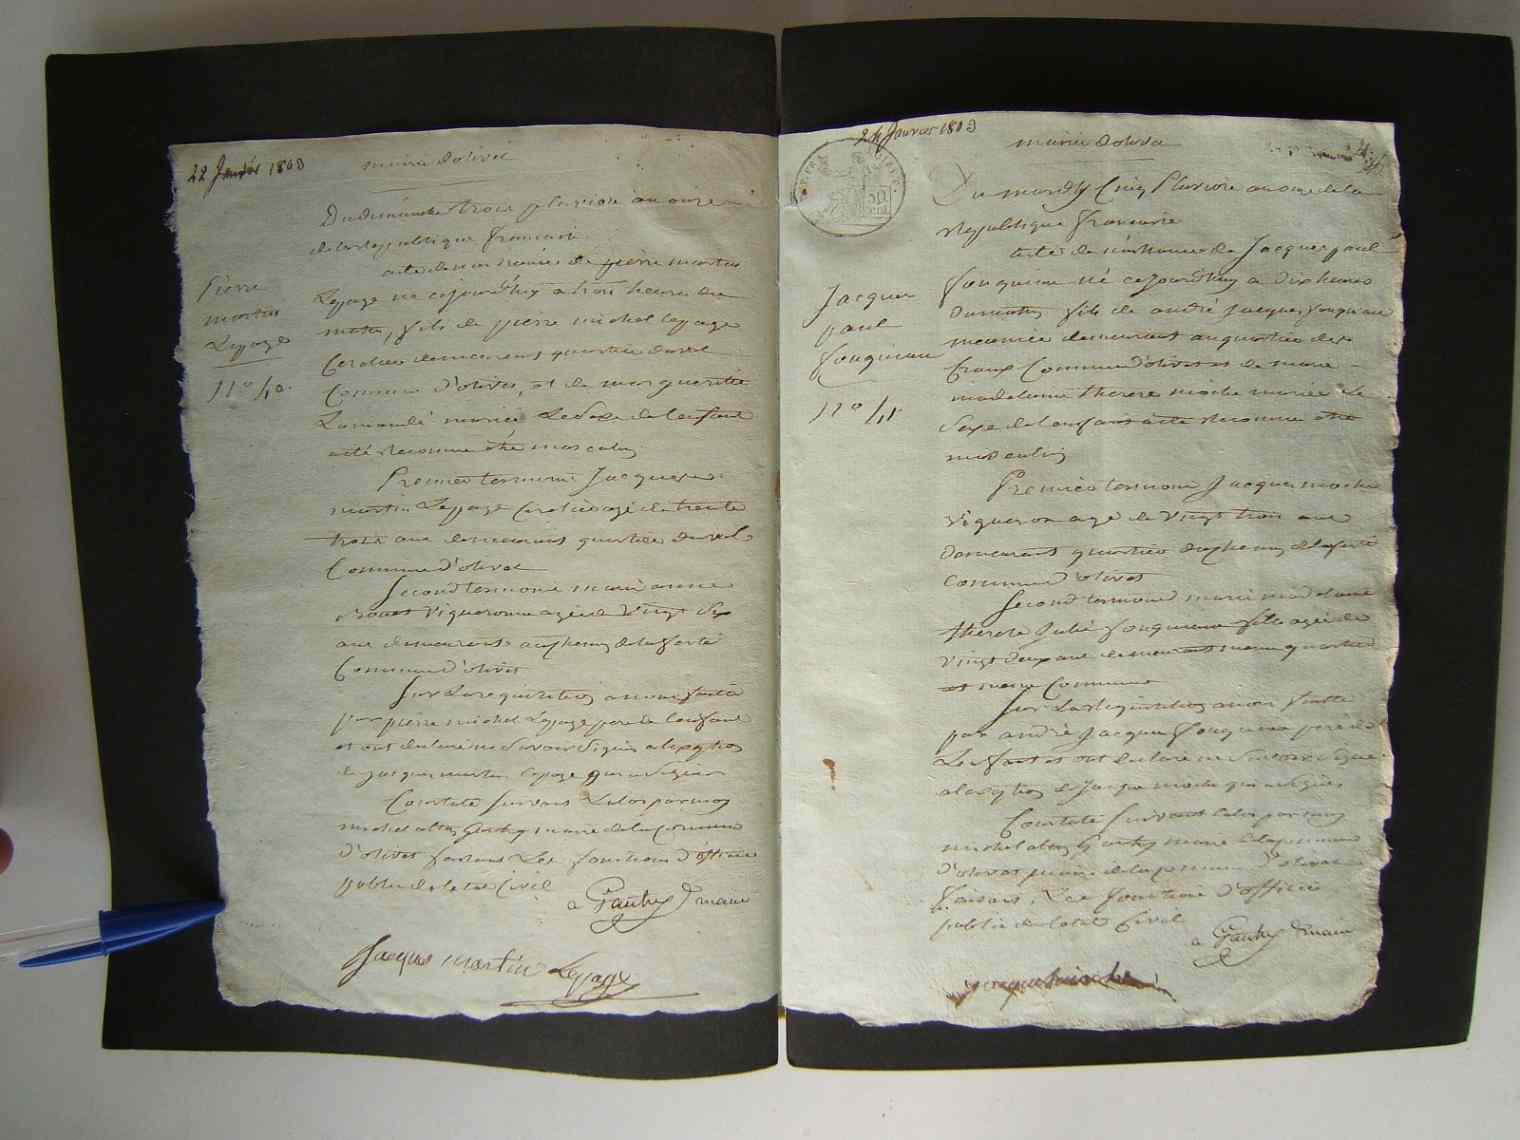 22 Janvier 1803
mairie dolivet
Du dimanche trois pluviose an onze
de la Republique francaise
acte de naissance de pierre martin
Lepage né cejourd'huy a trois heures du
matin, fils de pierre michel lepage
Cordier demeurant quartier duval
Commune d'olivet, et de marguerite
mariée Le Sexe de lenfant
a été reconnu etre masculin
Premier temoin Jacques
martin Lepage Cordier agé de trente
trois ans demeurant quartier duval
Commune d'olivet
Second temoin marianne
vigneronne agée de Vingt Six
ans demeurant au chemin de la ferté
Commune d'olivet
Sur La requisition a nous faitte
par pierre michel Lepage pere de lenfant
et ont declaré ne Savoir Signer a lexception
de jacques martin lepage qui a Signé
Constaté Suivant La loi par moy
michel Gauthy maire de la Commune
d'olivet faisant Les fonctions d'officier
public de letat Civil
a Gauthy maire
Jacques martin Lepage
Pierre
martin
Lepage
n° 40.
24 Janvier 1803
mairie dolivet
Du mardy Cinq Pluviose an onze de la
Republique francaise
acte de naissance de Jacques paul
fouqueau né cejourd'huy a Dix heures
Du matin fils de andré Jacques fouqueau
demeurant au quartier des
Commune d'olivet et de marie
madelaine therese mariée Le
Sexe de lenfant a été reconnu etre
masculin
Premier temoin Jacques
vigneron agé de Vingt trois ans
demeurant quartier du chemin de la ferté
Commune d'olivet
Second temoin marie madelaine
therese Julie fouqueau fille agée de
vingt deux ans demeurant meme quartier
et meme Commune
Sur La requisition a nous faitte
par andré Jacques fouqueau pere de
Lenfant et ont declaré ne Savoir Signer
a lexception de Jacques qui a Signé
Constaté Suivant la loi par moy
michel Gauthy maire de la Commune
d'olivet
faisant Les fonctions d'officier
public de letat Civil
a Gauthy maire
Jacques
paul
fouqueau
n° 41